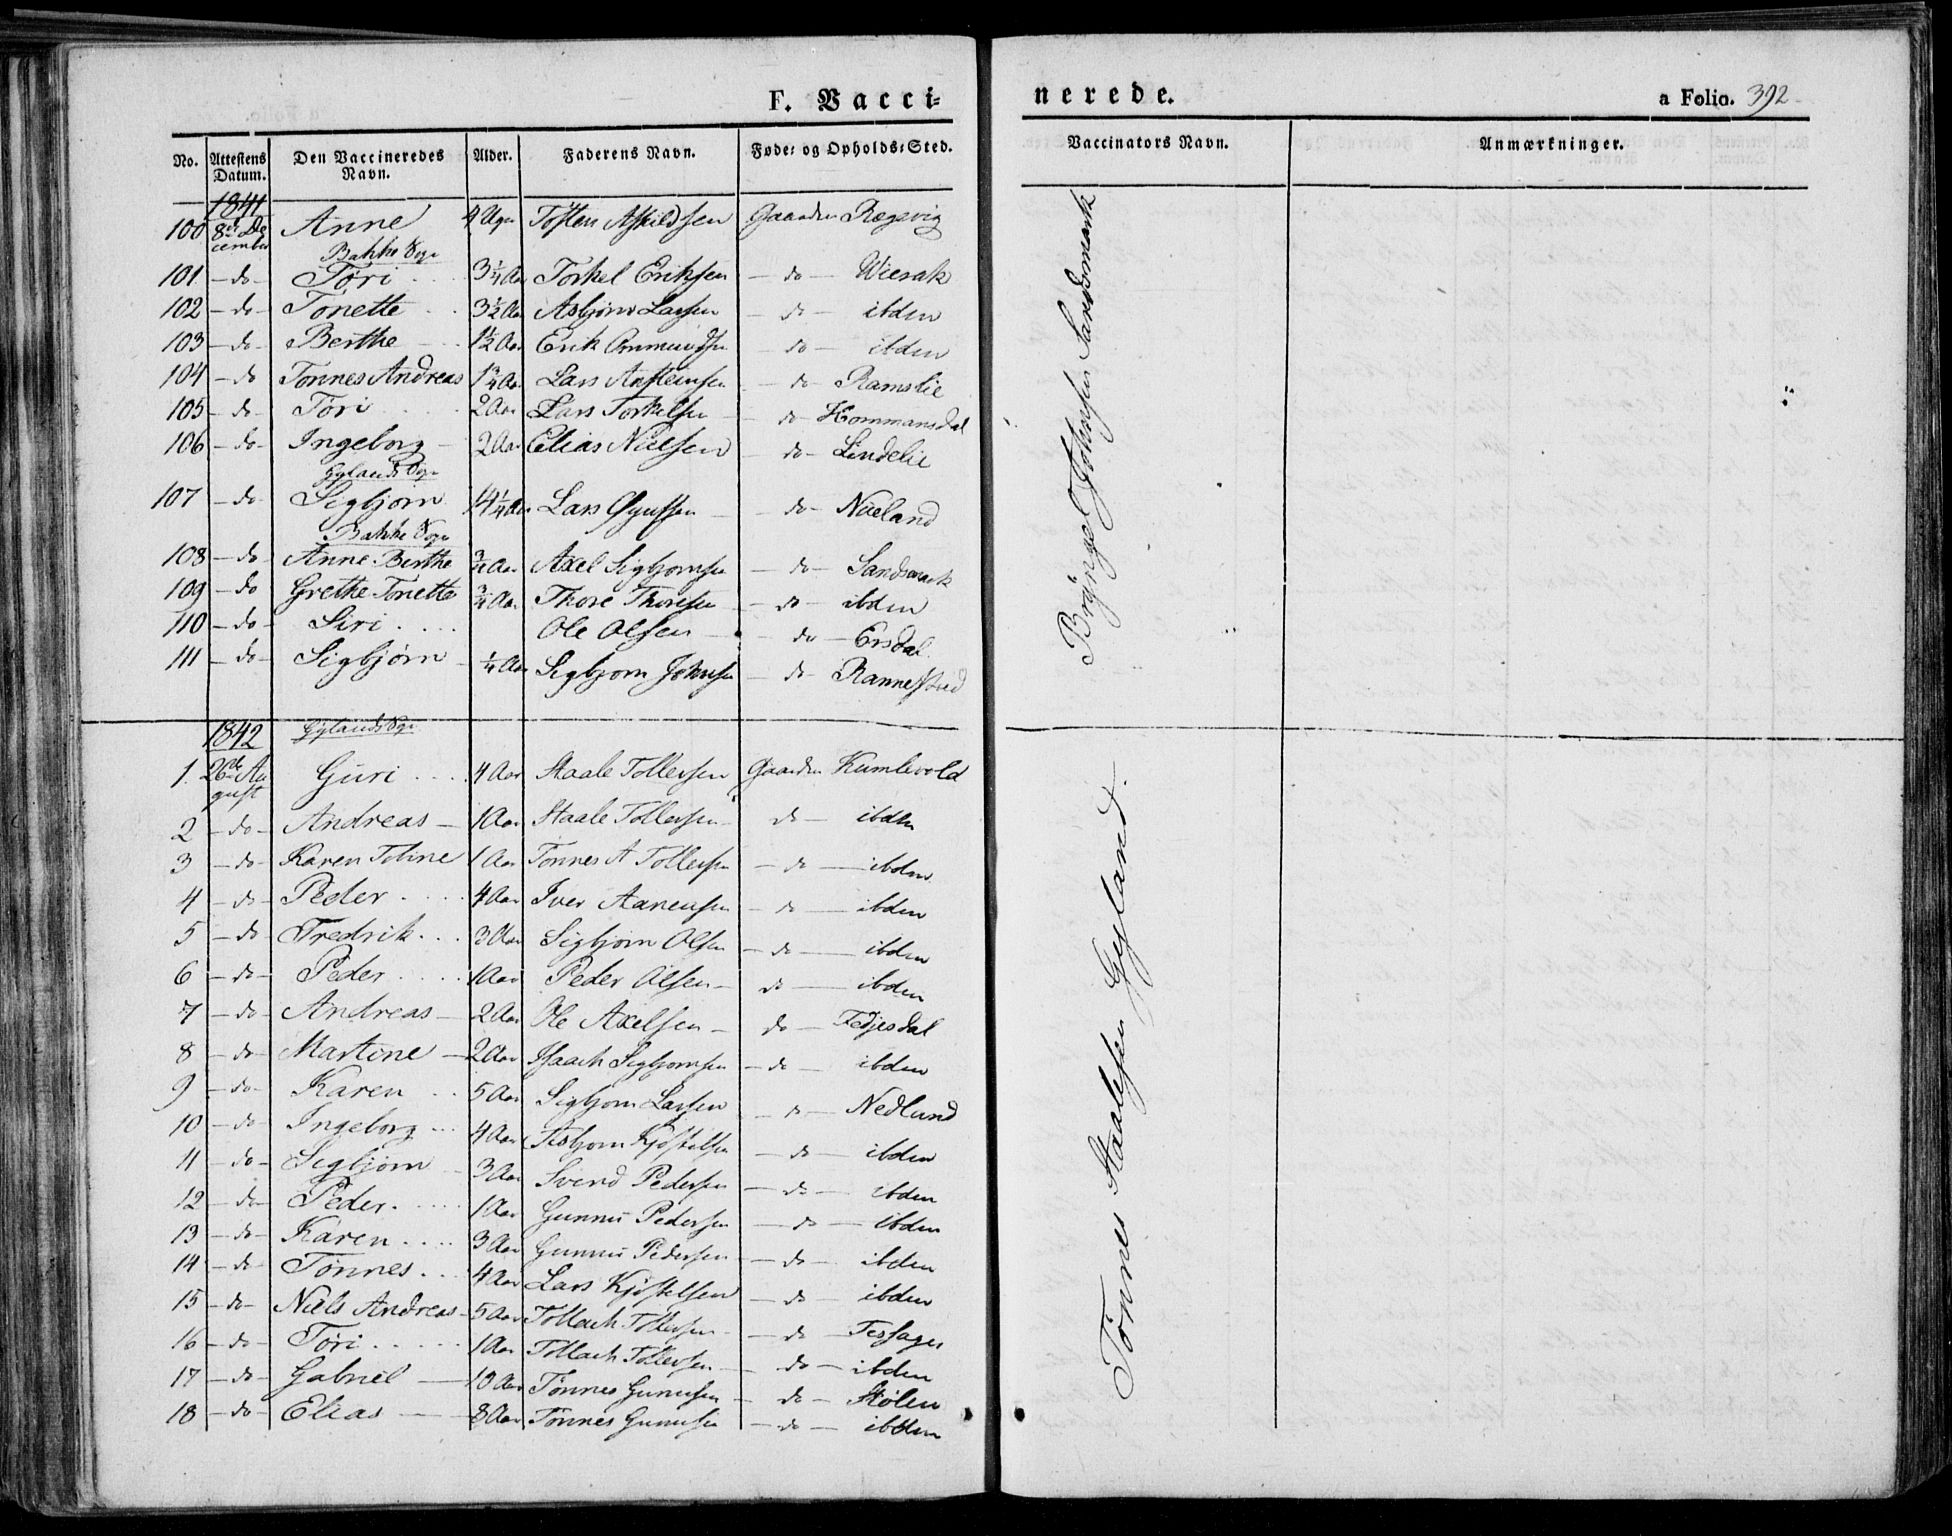 F. Vacci=
nerede.
a Folio. 392
No. Attestens Datum. Den Vaccineredes Navn. Alder. Faderens Navn. Føde= og Opholds=Sted. Vaccinators Navn. Anmærkninger.
1841
100 8de De cember Anne 4 Ugr Tosten Askildsen Gaarden Regevig
Bakke Sogn
101 - do - Tøri 3 1/4 Aar Torkel Eriksen - do - Wiesak
102 - do - Tonette 3 1/2 Aar Asbjørn Larsen - do - ibden
103 - do - Berthe 1 1/2 Aar Erik Ommundsen - do - ibden
104 - do Tønnes Andreas 1 3/4 Aar Lars Ansteinsen - do - Ramslie
105 - do - Tøri 2 Aar Lars Torkelsen - do - Hommansdal
106 - do - Ingeborg - 2 Aar Elias Nielsen - do - Lindelie
Gylands Sogn
107 - do - Sigbjørn 14 1/4 Aar Lars - do - Nueland
Bakke Sogn
108 - do - Anne Berthe 3/4 Aar Axel Sigbjørnsen - do - Sandsmark
109 - do Grethe Tonette 3/4 Aar Thore Thoresen - do - ibden
110 - do - Siri Ole Olsen - do - Ersdal
111 - do - Sigbjørn 1/4 Aar Sigbjørn Johnsen - do - Rannestad
Brynjel Johnsen Sandsmark
1842 Gylands Sogn
1. 26de Au gust Guri 4 Aar Staale Tollefsen Gaarden Kumlevold
2 - do - Andreas - 1 Aar Staale Tollefsen - do - ibden
3 - do - Karen Tobine 1 Aar Tønnes A Tollefsen - do - ibden
4 - do - Peder 4 Aar Iver Aanensen - do - ibden
5 - do Fredrik 3 Aar Sigbjørn Olsen - do - ibden
6 - do - Peder 1 Aar Peder Olsen - do - ibden
7 - do - Andreas - 2 Aar Ole Axelsen - do - Fedjesdal
8 - do - Martine - 2 Aar Isaach Sigbjørnsen - do - ibden
9 - do - Karen 5 Aar Sigbjørn Larsen - do - Nedlund
10 - do - Ingeborg 4 Aar Asbjørn Kjøstelsen - do - ibden
11 - do - Sigbjørn 3 Aar Svend Pedersen - do - ibden
12 - do - Peder 1 Aar Gunnu Pedersen - do - ibden
13 - do - Karen 3 Aar Gunnu Pedersen - do - ibden
14 - do Tønnes 4 Aar Lars Kjøstelsen - do - ibden
15 - do - Niels Andreas - 5 Aar Tollach Tollefsen - do - Tessager
16 - do - Tøri 1 Aar Tollach Tollefsen - do - ibden
17 - do - Gabriel - 10 Aar Tønnes Gunusen - do - Stølen
18 - do - Elias - 8 Aar Tønnes Gunusen - do - ibden
Tønnes Staalesen Gyland.